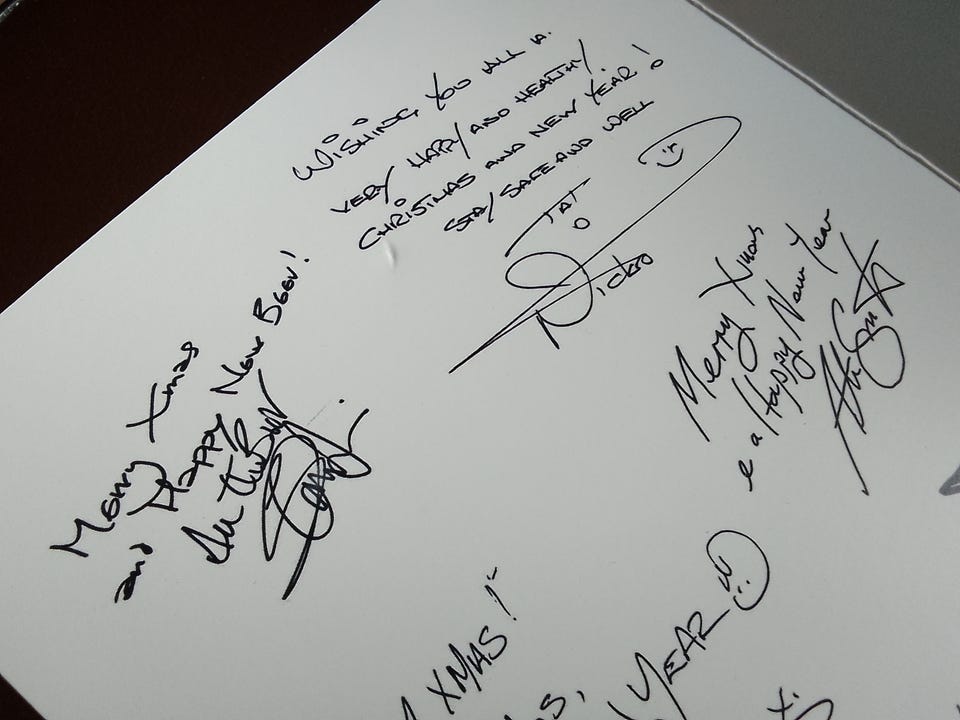 WISHING YOU ALL A
VERY HAPPY AND HEALTHY
CHRISTMAS AND NEW YEAR!
STAY SAFE AND WELL
Merry Xmas
and Happy New Beer!
All the
Merry Xmas
e a Happy New Year
XMAS!
YEAR